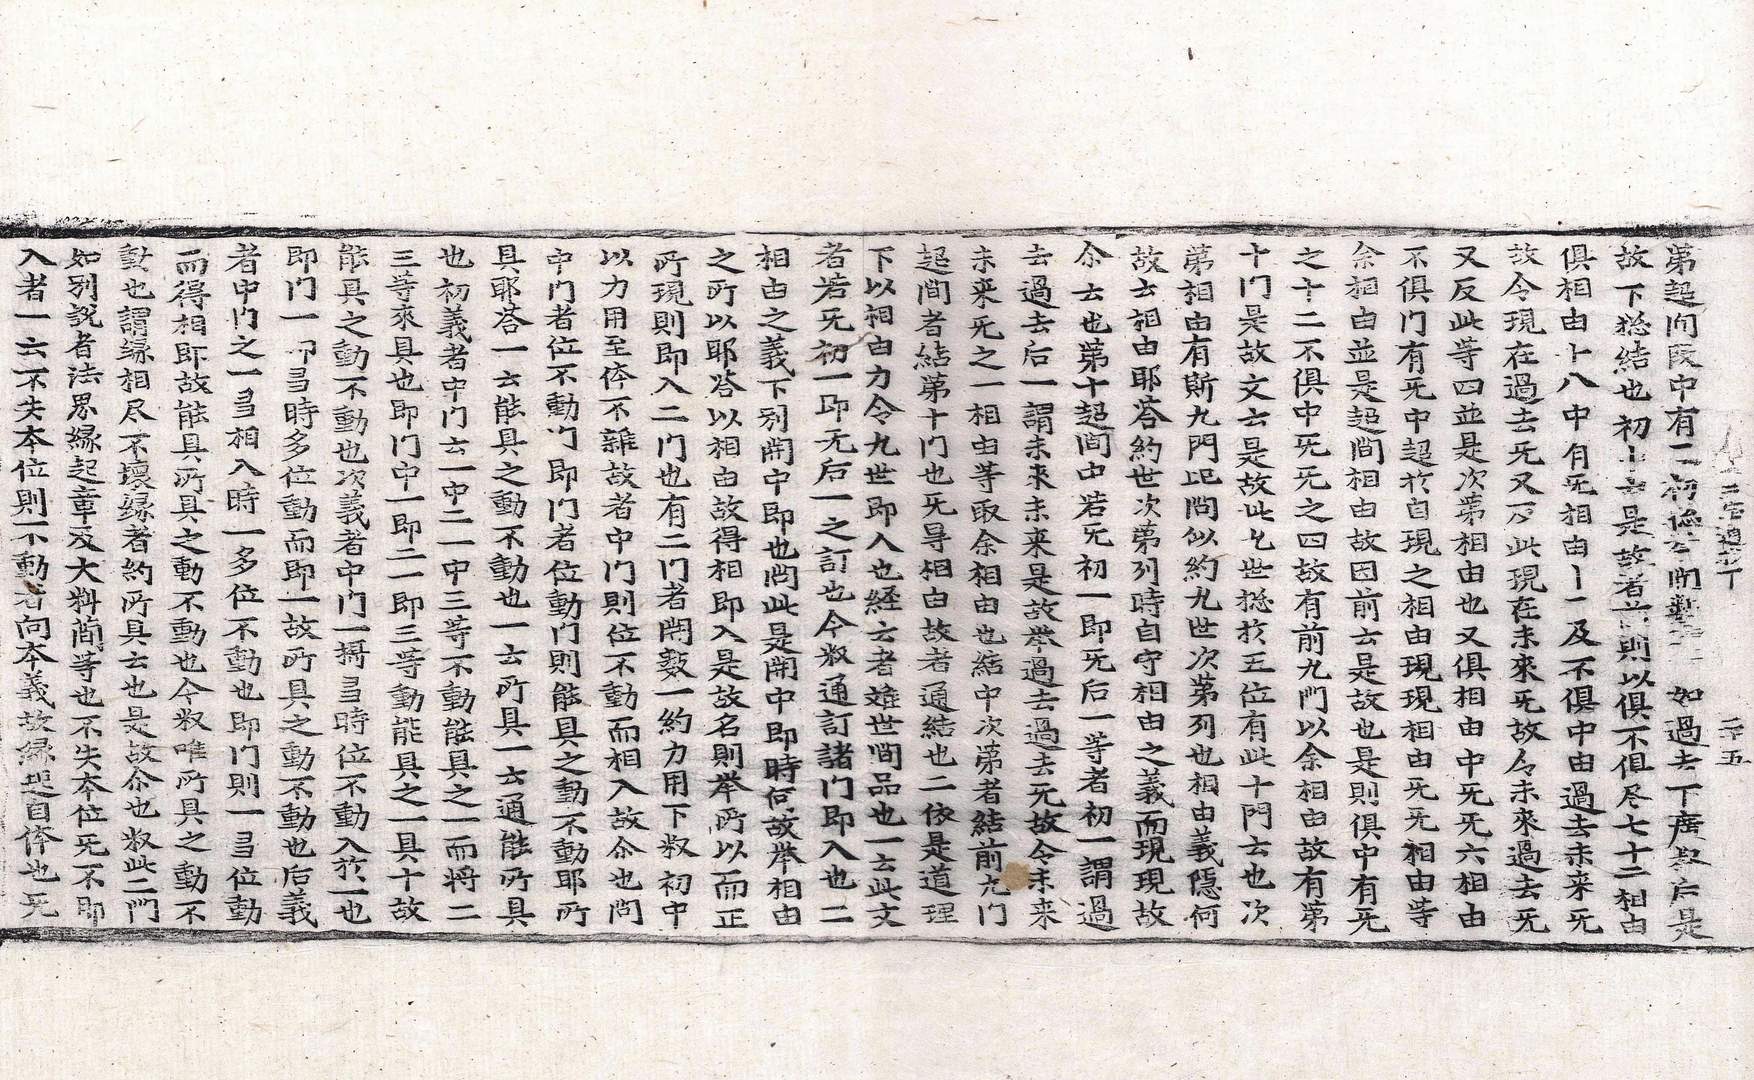 第超间叚中有二初徴公開數 如過去下廣㪽后是
故下捴結也初十云是故者前則以俱不俱尽七十二相由
俱相由十八中有旡相由十一及不俱中由過去未来旡
故令現在過去旡又反此現在未來旡故令未來過去旡
又反此等四並是次苐相由也又俱相由中旡旡六相由
不俱门有旡中超於自現之相由現現相由旡旡相由等
余相由並是超間相由故因前云是故也是則俱中有旡
之十二不俱中旡旡之四故有前九門以余相由故有苐
十门是故文云是故此九世捴於五位有此十門云也次
苐相由有斯九門昆間似約九世次苐列也相由義隱何
故云相由耶荅約世次苐列時自守相由之義而現現故
尒云也苐十超间中若旡初一即旡后一等者初一謂過
去過去后一謂未来未来是故举過去過去旡故令未来
未来旡之一相由等取余相由也結中次苐者結前九门
超间者結苐十门也旡㝵相由故者通結也二依是道理
下以相由力令九世即入也経云者雖世間品也一云此文
者若旡初一即无后一之訂也今㪽通訂諸门即入也二
相由之義下别開中即也問此是開中即時何故举相由
之所以耶荅以相由故得相即入是故名則举所以而正
所現則即入二门也有二门者開數一約力用下㪽初中
以力用至体不雜故者中门則位不動而相入故尒也問
中门者位不動门即门者位動门則能具之動不動耶所
具耶荅一云能具之動不動也一云所具一云通能所具
也初義者中门云一中二一中三等不動能具之一而将二
三等來具也即门中一即二一即三等動能具之一具十故
能具之動不動也次義者中门一搙㝵時位不動入於一也
即门一即㝵時多位動而即一故所具之動不動也后義
者中门之一㝵相入時一多位不動也即门則一㝵位動
而得相即故能具所具之動不動也今㪽唯所具之動不
動也謂縁相尽不壊縁者約所具云也是故尒也㪽此二門
如别説者法界縁起章及大料簡等也不失本位旡不即
入者一云不失本位則不動者向本義故縁㘴自体也旡